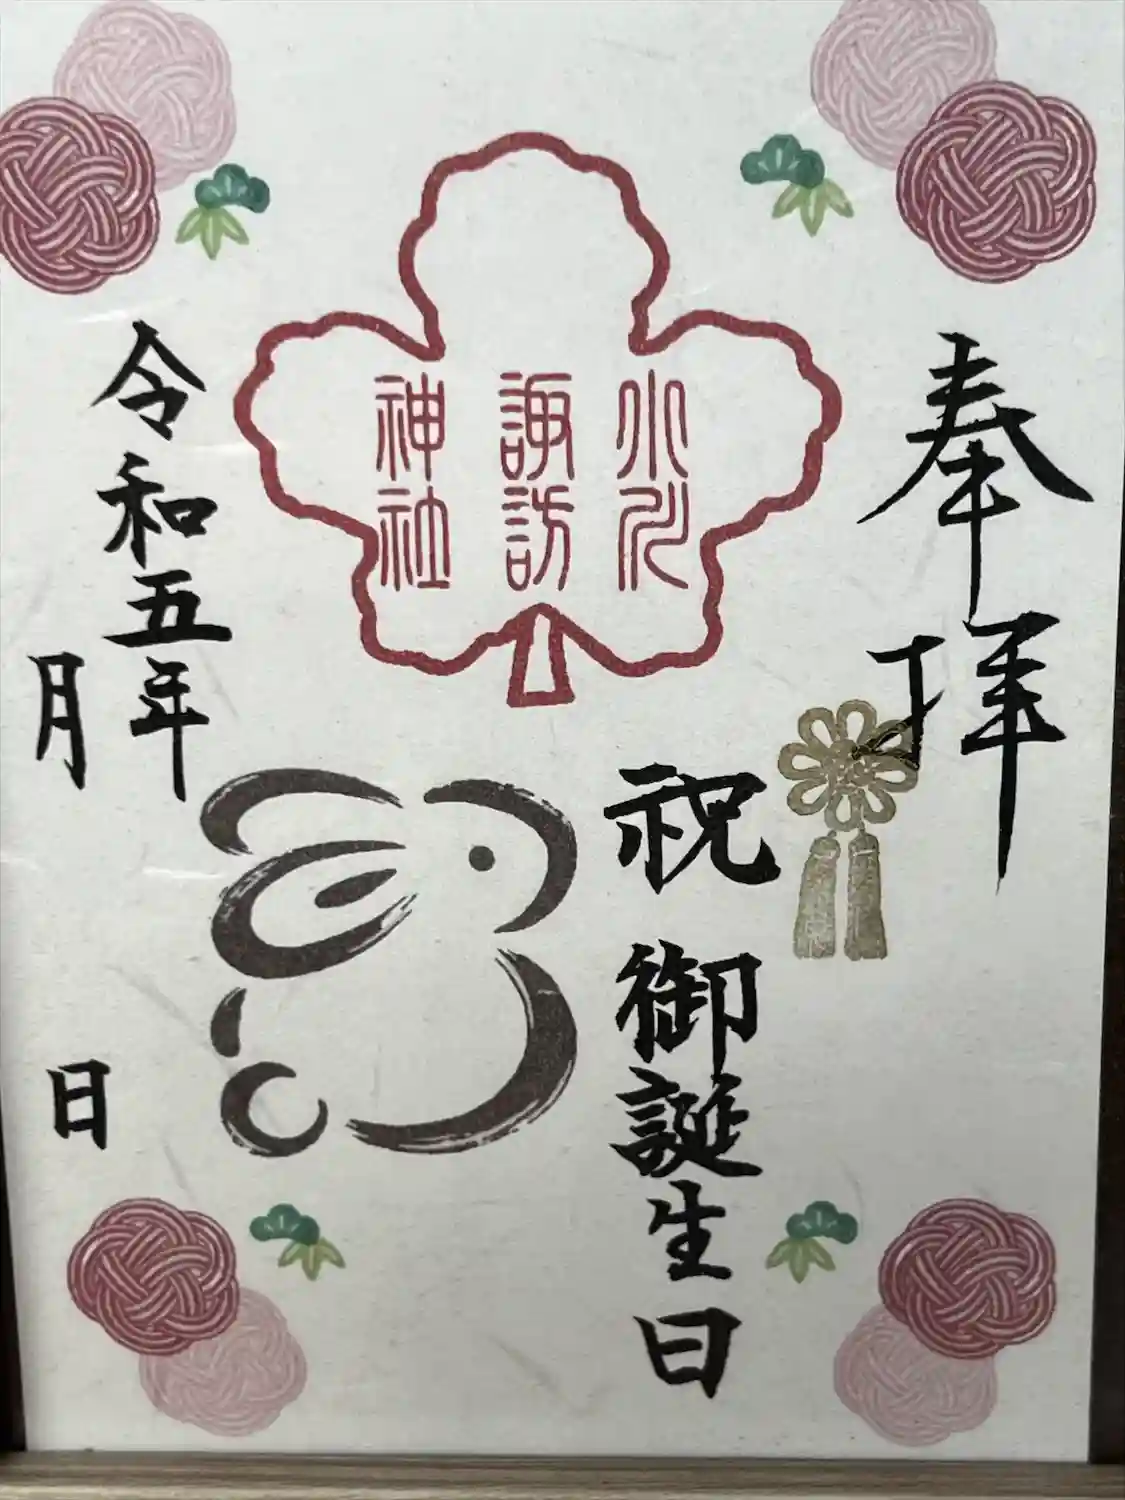 奉拝
小川
諏訪
神社
祝 御誕生日
令和五年
月 日